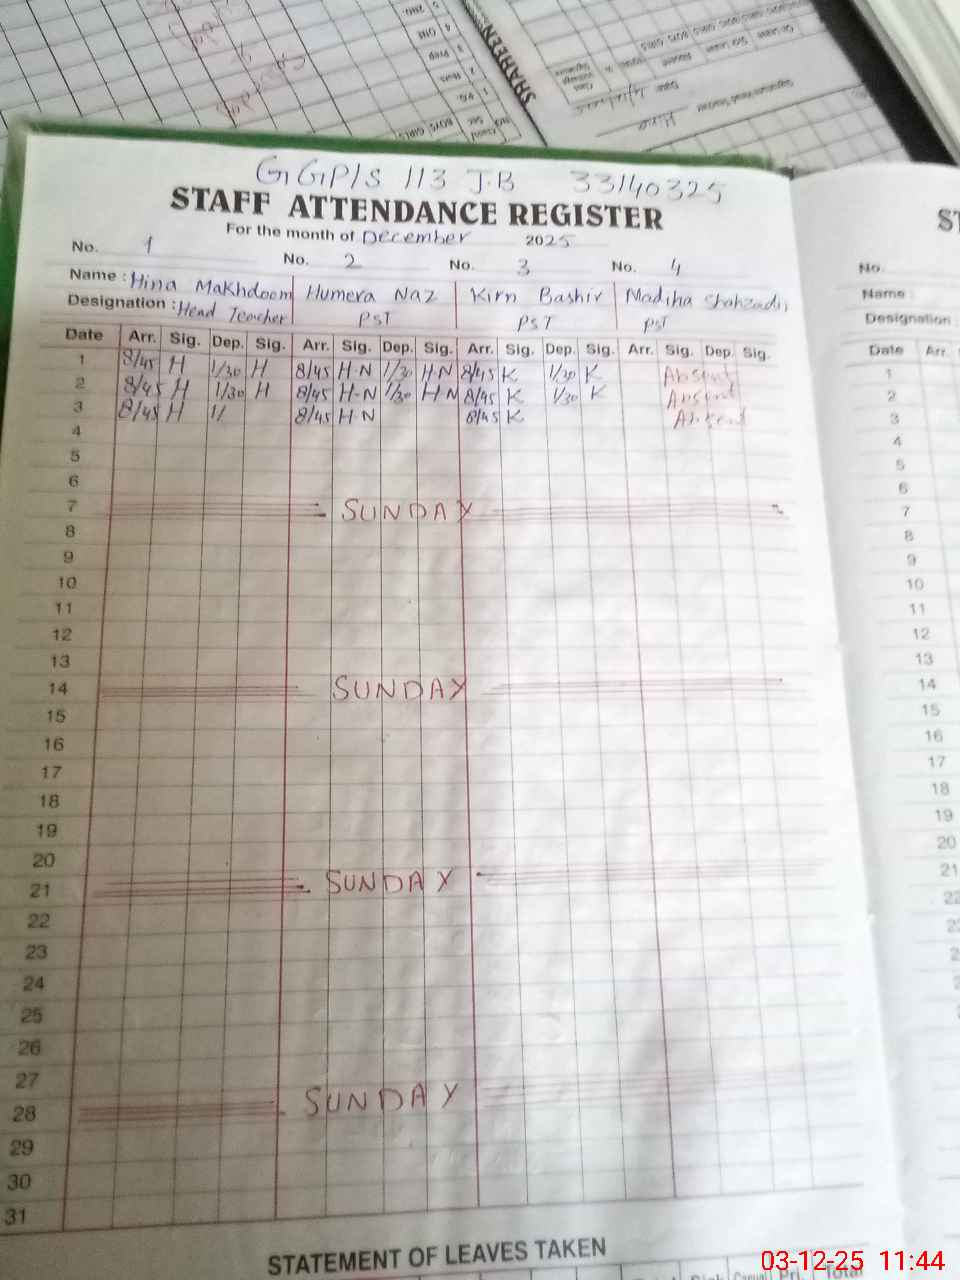 GGP/S 113 J.B 33140325
STAFF ATTENDANCE REGISTER
For the month of December 2025
No. 1 No. 2 No. 3 No. 4
Name : Hina Makhdoom Humera Naz Kirn Bashir Madiha Shahzadi
Designation : Head Teacher PST PST PST
Date Arr. Sig. Dep. Sig. Arr. Sig. Dep. Sig. Arr. Sig. Dep. Sig. Arr. Sig. Dep. Sig.
1 8/45 H 1/30 H 8/45 H-N 1/30 H-N 8/45 K 1/30 K Absent
2 8/45 H 1/30 H 8/45 H-N 1/30 H N 8/45 K 1/30 K Absent
3 8/45 H 1/ 8/45 H-N 8/45 K Absent
4
5
6
7 SUNDAY
8
9
10
11
12
13
14 SUNDAY
15
16
17
18
19
20
21 SUNDAY
22
23
24
25
26
27
28 SUNDAY
29
30
31
STATEMENT OF LEAVES TAKEN
Casual Pri. Total
No.
Name :
Designation :
Date Arr.
1
2
3
4
5
6
7
8
9
10
11
12
13
14
15
16
17
18
19
20
21
22
SHAHEEN
03-12-25 11:44